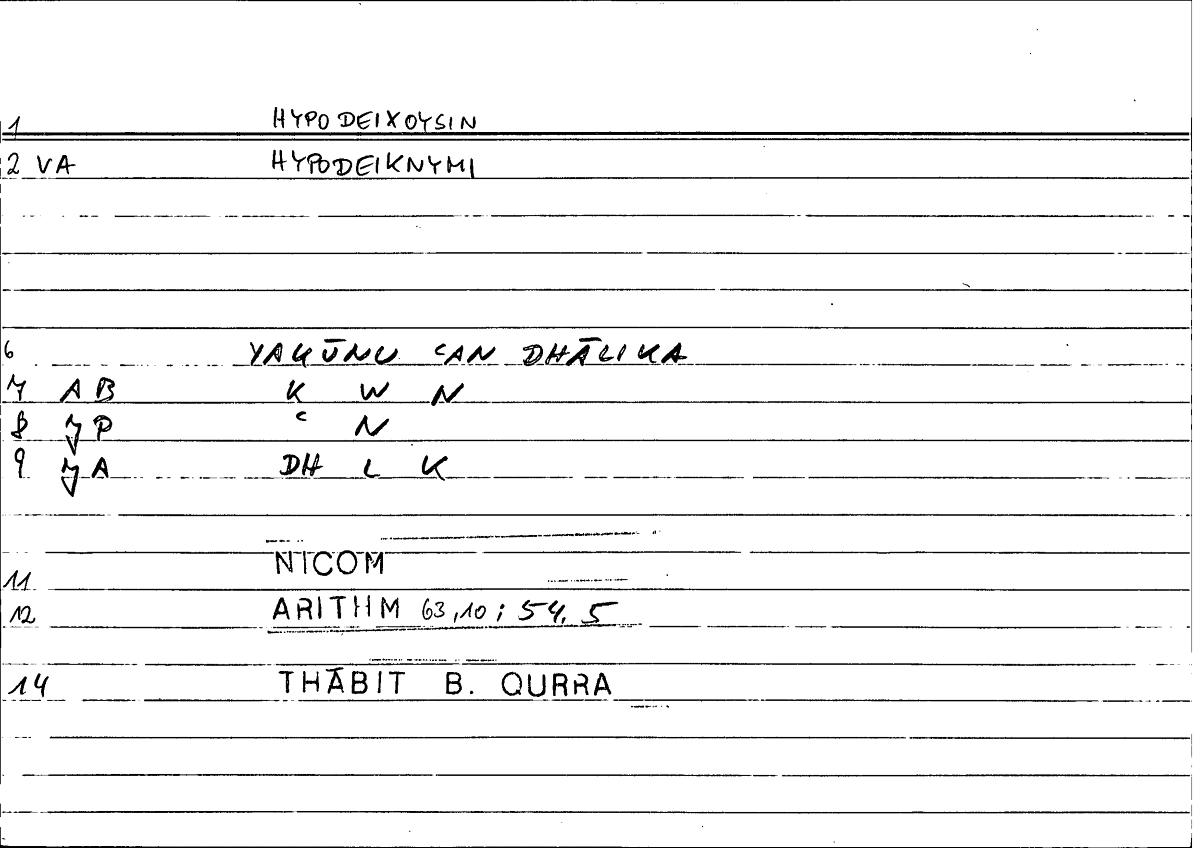 1 HYPODEIXOYSIN
2 VA HYPODEIKNYMI
6 YAKŪNU ʿAN DHĀLIKA
7 AB K W N
8 JP ʿ N
9 JA DH L K
11 NICOM
12 ARITHM 63,10; 54,5
14 THĀBIT B. QURRA